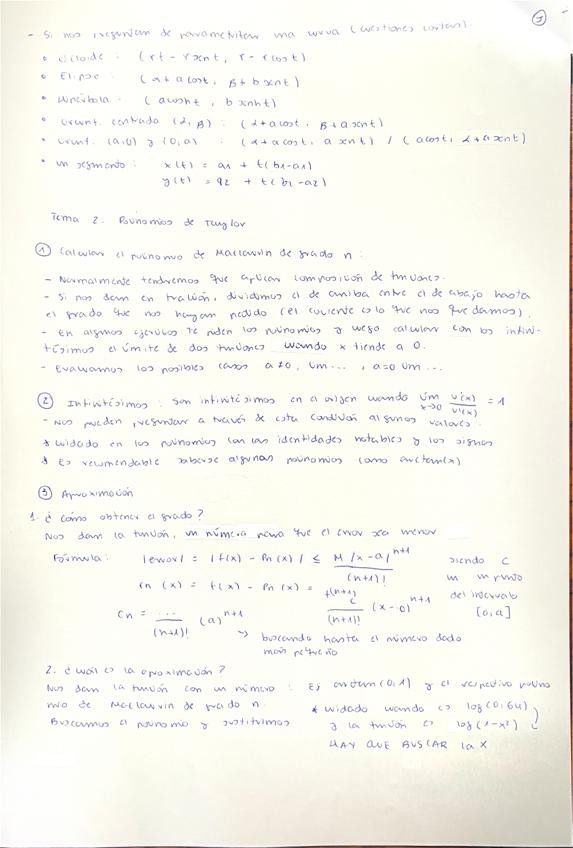 1
- Si nos preguntan de parametrizar una curva (cuestiones cortas).
• cicloide : (rt - r sent, r - r cost)
• Elipse : (α + a cost, β + b sent)
• hipérbola : (a cosh t, b senh t)
• circunf. centrada (α, β) : (α + a cost, β + a sent)
• circunf. (a,0) y (0,a) : (α + a cost, a sent) / (a cost, α + a sent)
• un segmento : x(t) = a1 + t(b1-a1)
y(t) = a2 + t(b2-a2)
Tema 2. Polinomios de Taylor
① Calcular el polinomio de Maclaurin de grado n :
- Normalmente tendremos que aplicar composición de funciones.
- Si nos dan en fracción, dividimos el de arriba entre el de abajo hasta
el grado que nos hayan pedido (el cociente es lo que nos quedamos).
- En algunos ejercicios te piden los polinomios y luego calcular con los infini-
tésimos el límite de dos funciones cuando x tiende a 0.
- Evaluamos los posibles casos a≠0, lim..., a=0 lim...
② Infinitésimos : son infinitésimos en el origen cuando lim x→0 u(x)/v(x) = 1
- Nos pueden preguntar a través de esta condición algunos valores.
* cuidado en los polinomios con las identidades notables y los signos
* Es recomendable saberse algunos polinomios como arctan(x)
③ Aproximación
1. ¿ cómo obtener el grado ?
Nos dan la función, un número para que el error sea menor
Fórmula : |error| = |f(x) - Pn(x)| ≤ M|x-a|^{n+1}/(n+1)! siendo c
en (x) = f(x) - Pn(x) = f^{(n+1)} c/(n+1)! (x-0)^{n+1} un punto
del intervalo
[0,a]
Cn = .../(n+1)! (a)^{n+1}
↪ buscando hasta el número dado
más pequeño
2. ¿ cuál es la aproximación ?
Nos dan la función con un número : Ej arctan(0,1) y el respectivo polino
mio de Maclaurin de grado n. * cuidado cuando es log(0,64)
Buscamos el polinomio y sustituimos y la función es log(1-x²)
HAY QUE BUSCAR la X